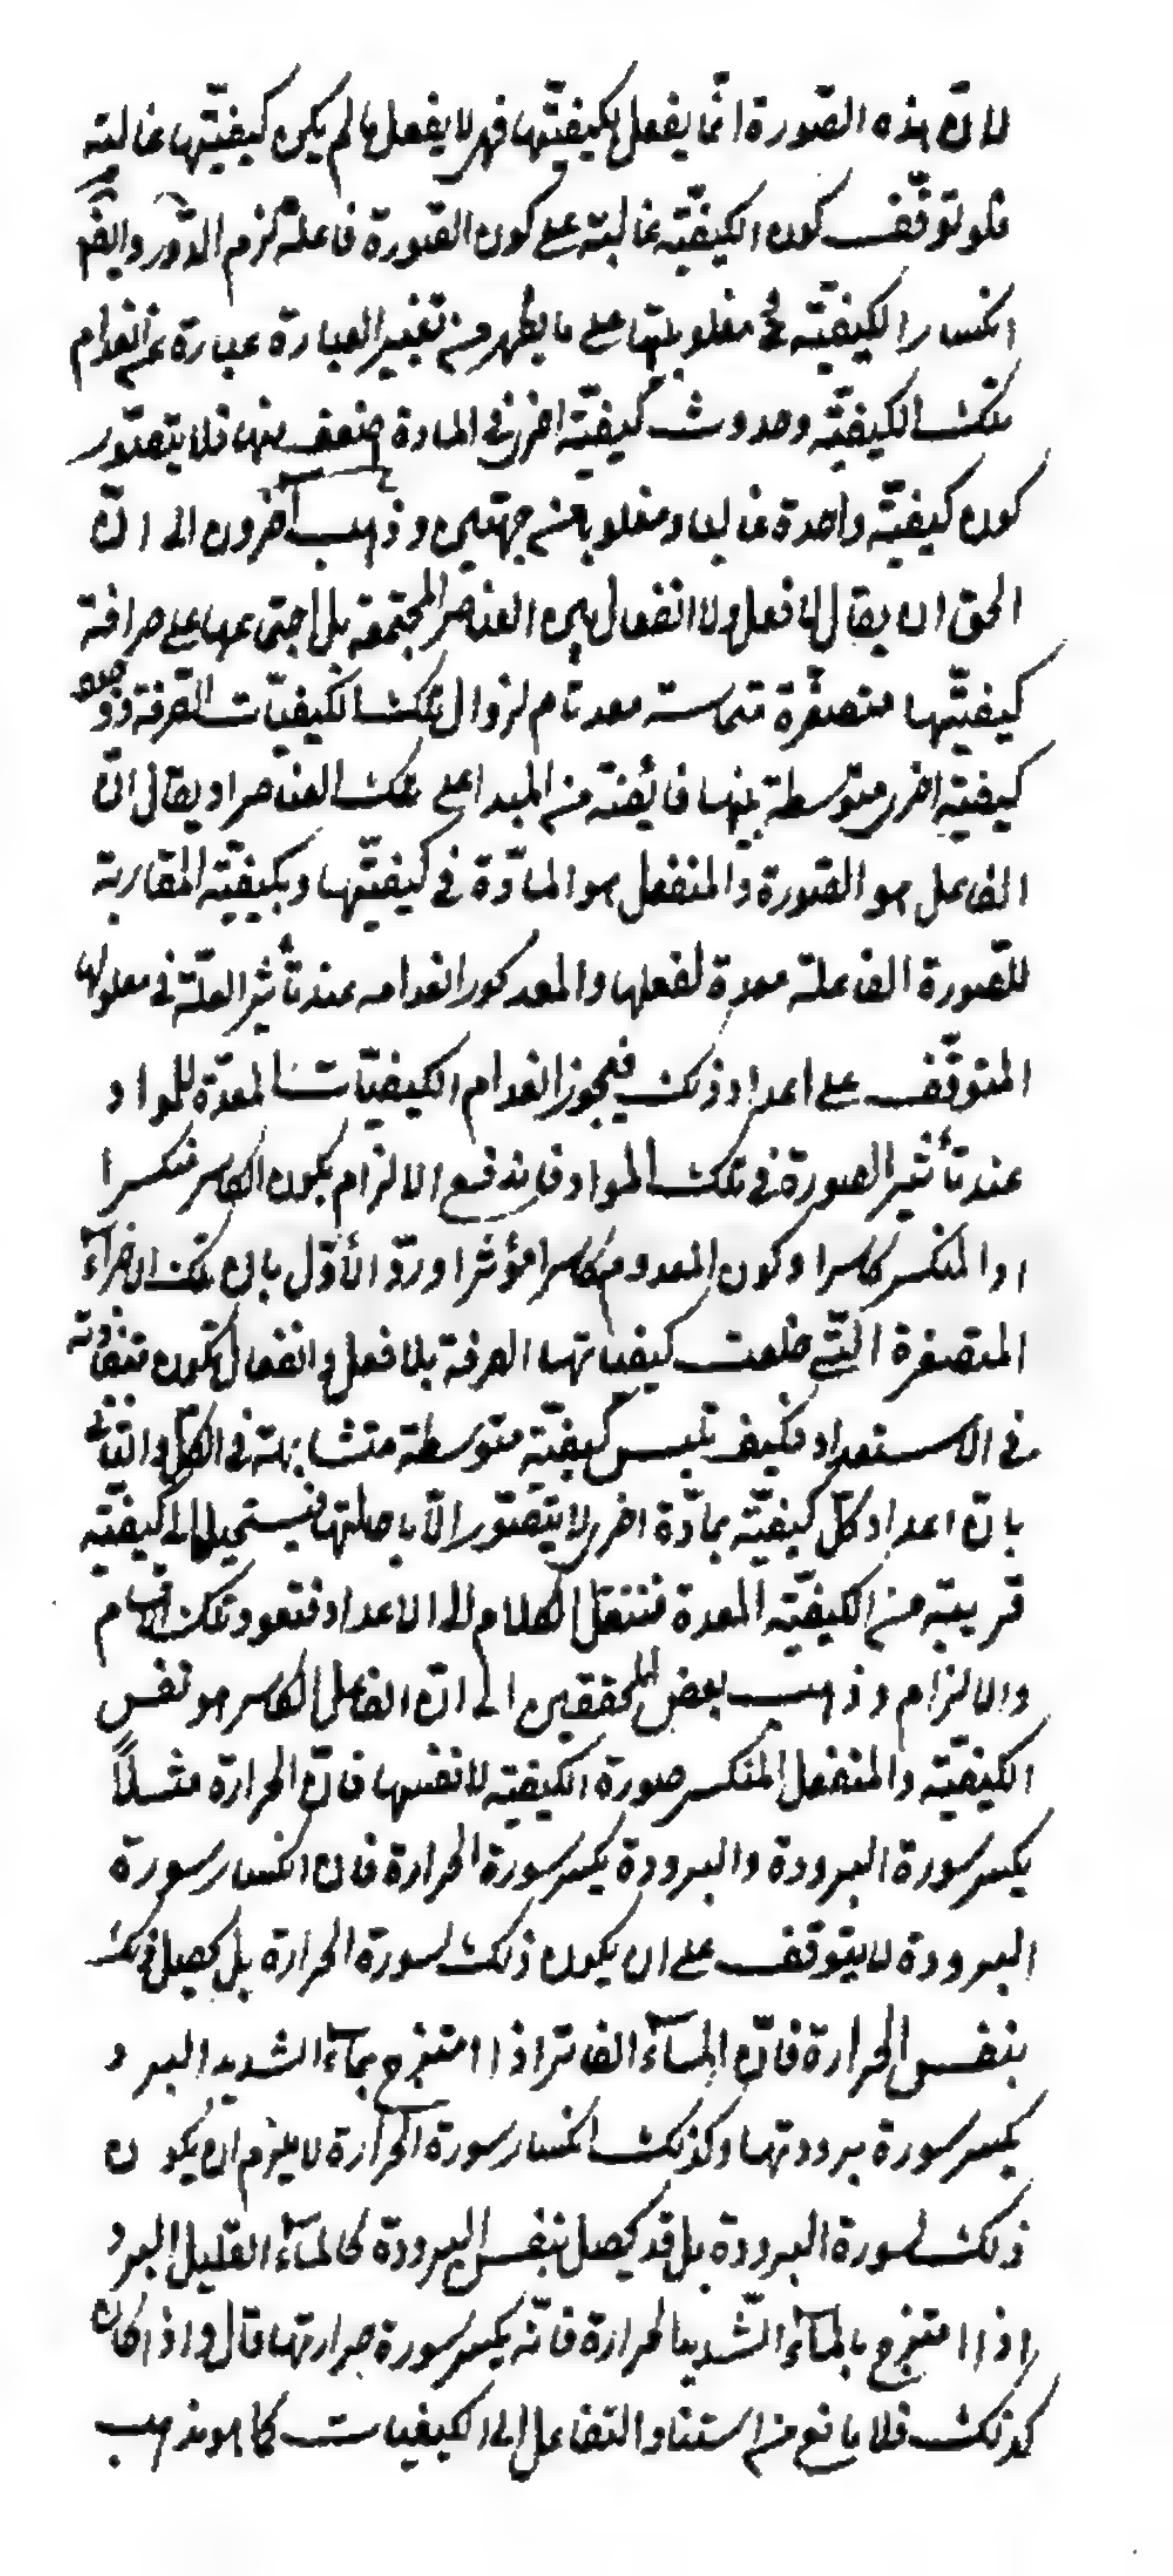 لانّ هذه الصّورة انّما يفعل بكيفيّتها فهى لا يفعل ما لم يكن كيفيّتها غالبة
فلو توقّف كون الكيفيّة غالبة على كون الصّورة فاعلة لزم الدّور وايضًا
انكسار الكيفيّة فى مغلوبيتها على ما يظهر من تغيير العبارة عبارة عن انعدام
تلك الكيفيّة وحدوث كيفيّة اخرى فى المادة اضعف منها فلا يتصوّر
كون كيفيّة واحدة غالبا ومغلوبا من جهتين وذهب آخرون الى انّ
الحق ان يقال لا فعل ولا انفعال بين العناصر المجتمعة بل اجتماعها على صرافة
كيفيّتها متصغّرة متماسة معد تام لزوال تلك الكيفيّات الصّرفة ووجود
كيفيّة اخرى متوسطة بينها فائضة من المبدا على تلك العناصر او يقال انّ
الفاعل هو الصّورة والمنفعل هو المادّة فى كيفيّتها وبكيفيّة المقارنة
للصّورة الفاعلة معدة لفعلها والمعد كور انعدامه عند تأثير العلّة فى معلولها
المتوقّف على اعداد ذلك فيجوز انعدام الكيفيّات المعدّة للمواد
عند تأثير الصورة فى تلك المواد فاندفع الالزام بكون الكاسر منكسرا
او المنكسر كاسرا وكون المعدوم كاسرا مؤثرا وردّ الأوّل بان تلك الاجزآء
المتصغرة الّتى خلعت كيفياتها الصرفة بلا فعل وانفعال تكون متفاوتة
فى الاستعداد فكيف تلبس كيفيّة متوسطة متشابهة فى الكلّ والثانى
بانّ اعداد كلّ كيفيّة بمادّة اخرى لا يتصّور الّا باحالتها فيستحيل الى كيفيّة
قريبة من الكيفيّة المعدة فننقل الكلام الى الاعداد فتعود تلك الاقسام
والالزام وذهب بعض المحققين الى انّ الفاعل الكاسر هو نفس
الكيفيّة والمنفعل المنكسر صورة الكيفيّة لا نفسها فانّ الحرارة مثلاً
يكسر سورة البرودة والبرودة يكسر سورة الحرارة فان انكسار سورة
البرودة لا يتوقف على ان يكون ذلك لسورة الحرارة بل يحصل
بنفس الحرارة فانّ المآء الفاتر اذا امتزج بمآء الشديد البرد
يكسر سورة برودتها وكذلك انكسار سورة الحرارة لا يلزم ان يكون
ذلك لسورة البرودة بل قد يحصل بنفس البرودة كالمآء القليل البرد
اذا امتزج بالمآء الشّديد الحرارة فانّه يكسر سورة حرارتها قال واذا كان
كذلك فلا مانع من استناد التفاعل الى الكيفيات كما هو مذهب